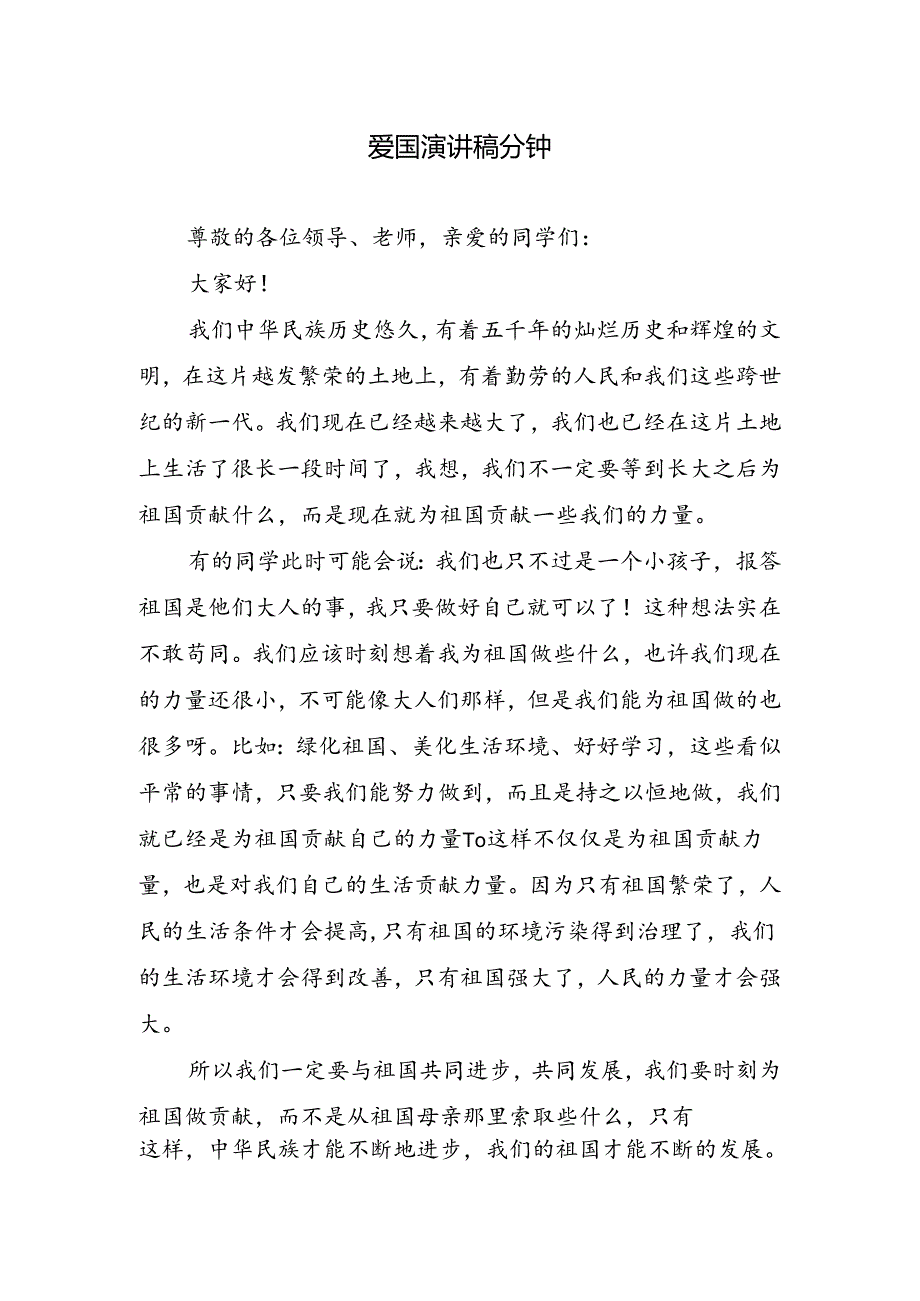 爱国演讲稿分钟
尊敬的各位领导、老师，亲爱的同学们：
大家好！
我们中华民族历史悠久，有着五千年的灿烂历史和辉煌的文
明，在这片越发繁荣的土地上，有着勤劳的人民和我们这些跨世
纪的新一代。我们现在已经越来越大了，我们也已经在这片土地
上生活了很长一段时间了，我想，我们不一定要等到长大之后为
祖国贡献什么，而是现在就为祖国贡献一些我们的力量。
有的同学此时可能会说：我们也只不过是一个小孩子，报答
祖国是他们大人的事，我只要做好自己就可以了！这种想法实在
不敢苟同。我们应该时刻想着我为祖国做些什么，也许我们现在
的力量还很小，不可能像大人们那样，但是我们能为祖国做的也
很多呀。比如：绿化祖国、美化生活环境、好好学习，这些看似
平常的事情，只要我们能努力做到，而且是持之以恒地做，我们
就已经是为祖国贡献自己的力量To这样不仅仅是为祖国贡献力
量，也是对我们自己的生活贡献力量。因为只有祖国繁荣了，人
民的生活条件才会提高,只有祖国的环境污染得到治理了，我们
的生活环境才会得到改善，只有祖国强大了，人民的力量才会强
大。
所以我们一定要与祖国共同进步，共同发展，我们要时刻为
祖国做贡献，而不是从祖国母亲那里索取些什么，只有
这样，中华民族才能不断地进步，我们的祖国才能不断的发展。